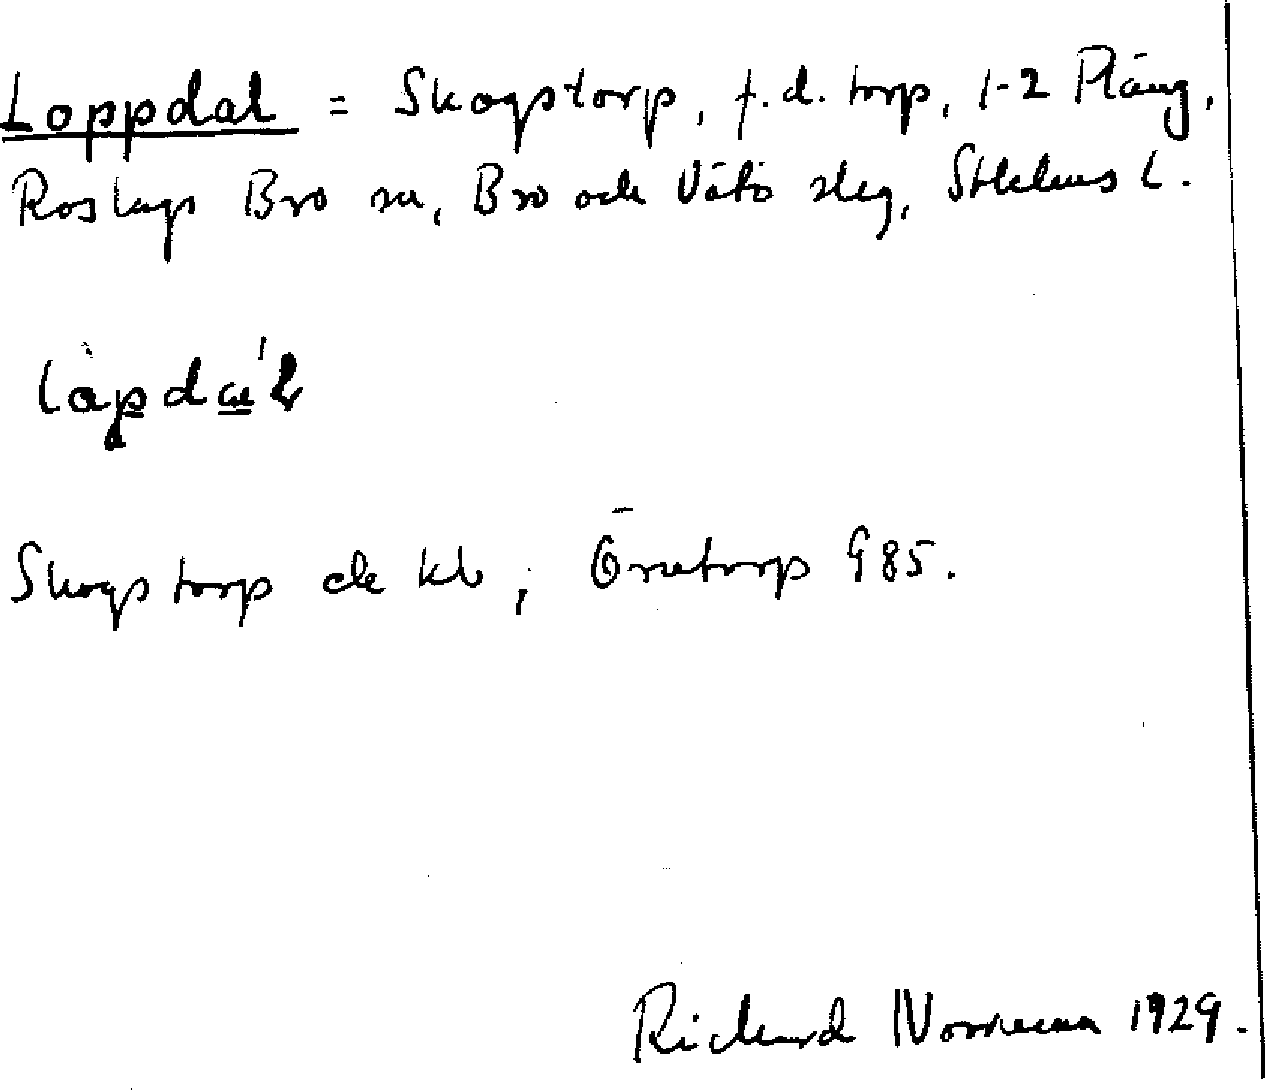 Loppdal = Skogstorp, f.d. torp, 1-2 Pläng,
Roslags Bro sn, Bro och Vätö slg, Sthlms l.
Skogstorp ek kb; Örntorp 985.
Richard Norrman 1929.